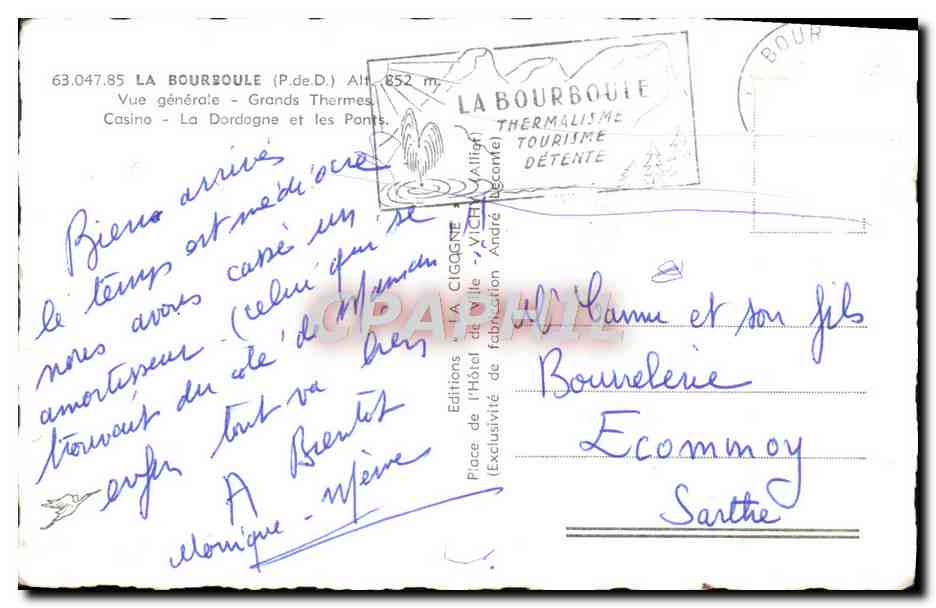 63.047.85 LA BOURBOULE (P.de D.) Alt. 852 m.
Vue générale - Grands Thermes.
Casino - La Dordogne et les Ponts.
LA BOURBOULE
THERMALISME
TOURISME
DÉTENTE
BOUR
Bien arrivés
le temps est médiocre
nous avons cassé un
amortisseur (celui qui se
trouvait du côté de Maman
enfin tout va bien
A Bientôt
Monique - Mémé
Editions " LA CIGOGNE "
Place de l'Hôtel de Ville - VICHY (Allier)
(Exclusivité de fabrication André Leconte)
CPAPHIL
et son fils
Bourrelerie
Ecommoy
Sarthe